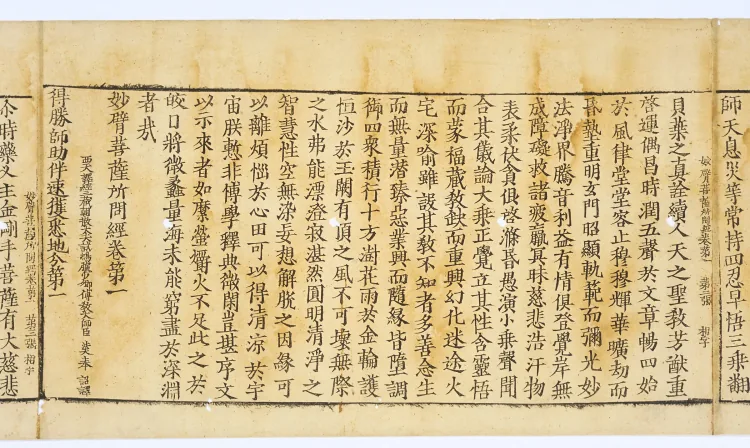 師天息災等常持四忍早悟三乘翻
妙臂菩薩所問經卷第一 第二張 相字
貝葉之真詮續人天之聖教芳猷重
啓運偶昌時潤五聲於文章暢四始
於風律堂堂容止穆穆輝華曠劫而
昏蟄重明玄門昭顯軌範而彌光妙
法淨界騰音利益有情俱登覺岸無
成障礙救諸疲羸冥昧慈悲浩汗物
表柔伏貪俱啓滌昏愚演小乘聲聞
合其儀論大乘正覺立其性含靈悟
而蒙福藏教缺而重興幻化迷途火
宅深喻雖設其教不知者多善念生
而無量潛臻惡業興而隨緣皆墮調
御四衆積行十方澍花雨於金輪護
恒沙於玉闕有頂之風不可壞無際
之水弗能漂澄寂湛然圓明清淨之
智慧性空無染妄想解脫之因緣可
以離煩惱於心田可以得清涼於宇
宙朕慙非博學釋典微閑豈堪序文
以示來者如縻螢爝火不足比之於
皎日將微蠡量海未能窮盡於深淵
者哉
妙臂菩薩所問經卷第一
西天譯經三藏朝散大夫試鴻臚少卿傳教大師臣法天奉 詔譯
得勝師助伴速獲悉地分第一
妙臂菩薩所問經卷第一 第三張 相字
尒時藥叉主金剛手菩薩有大慈悲